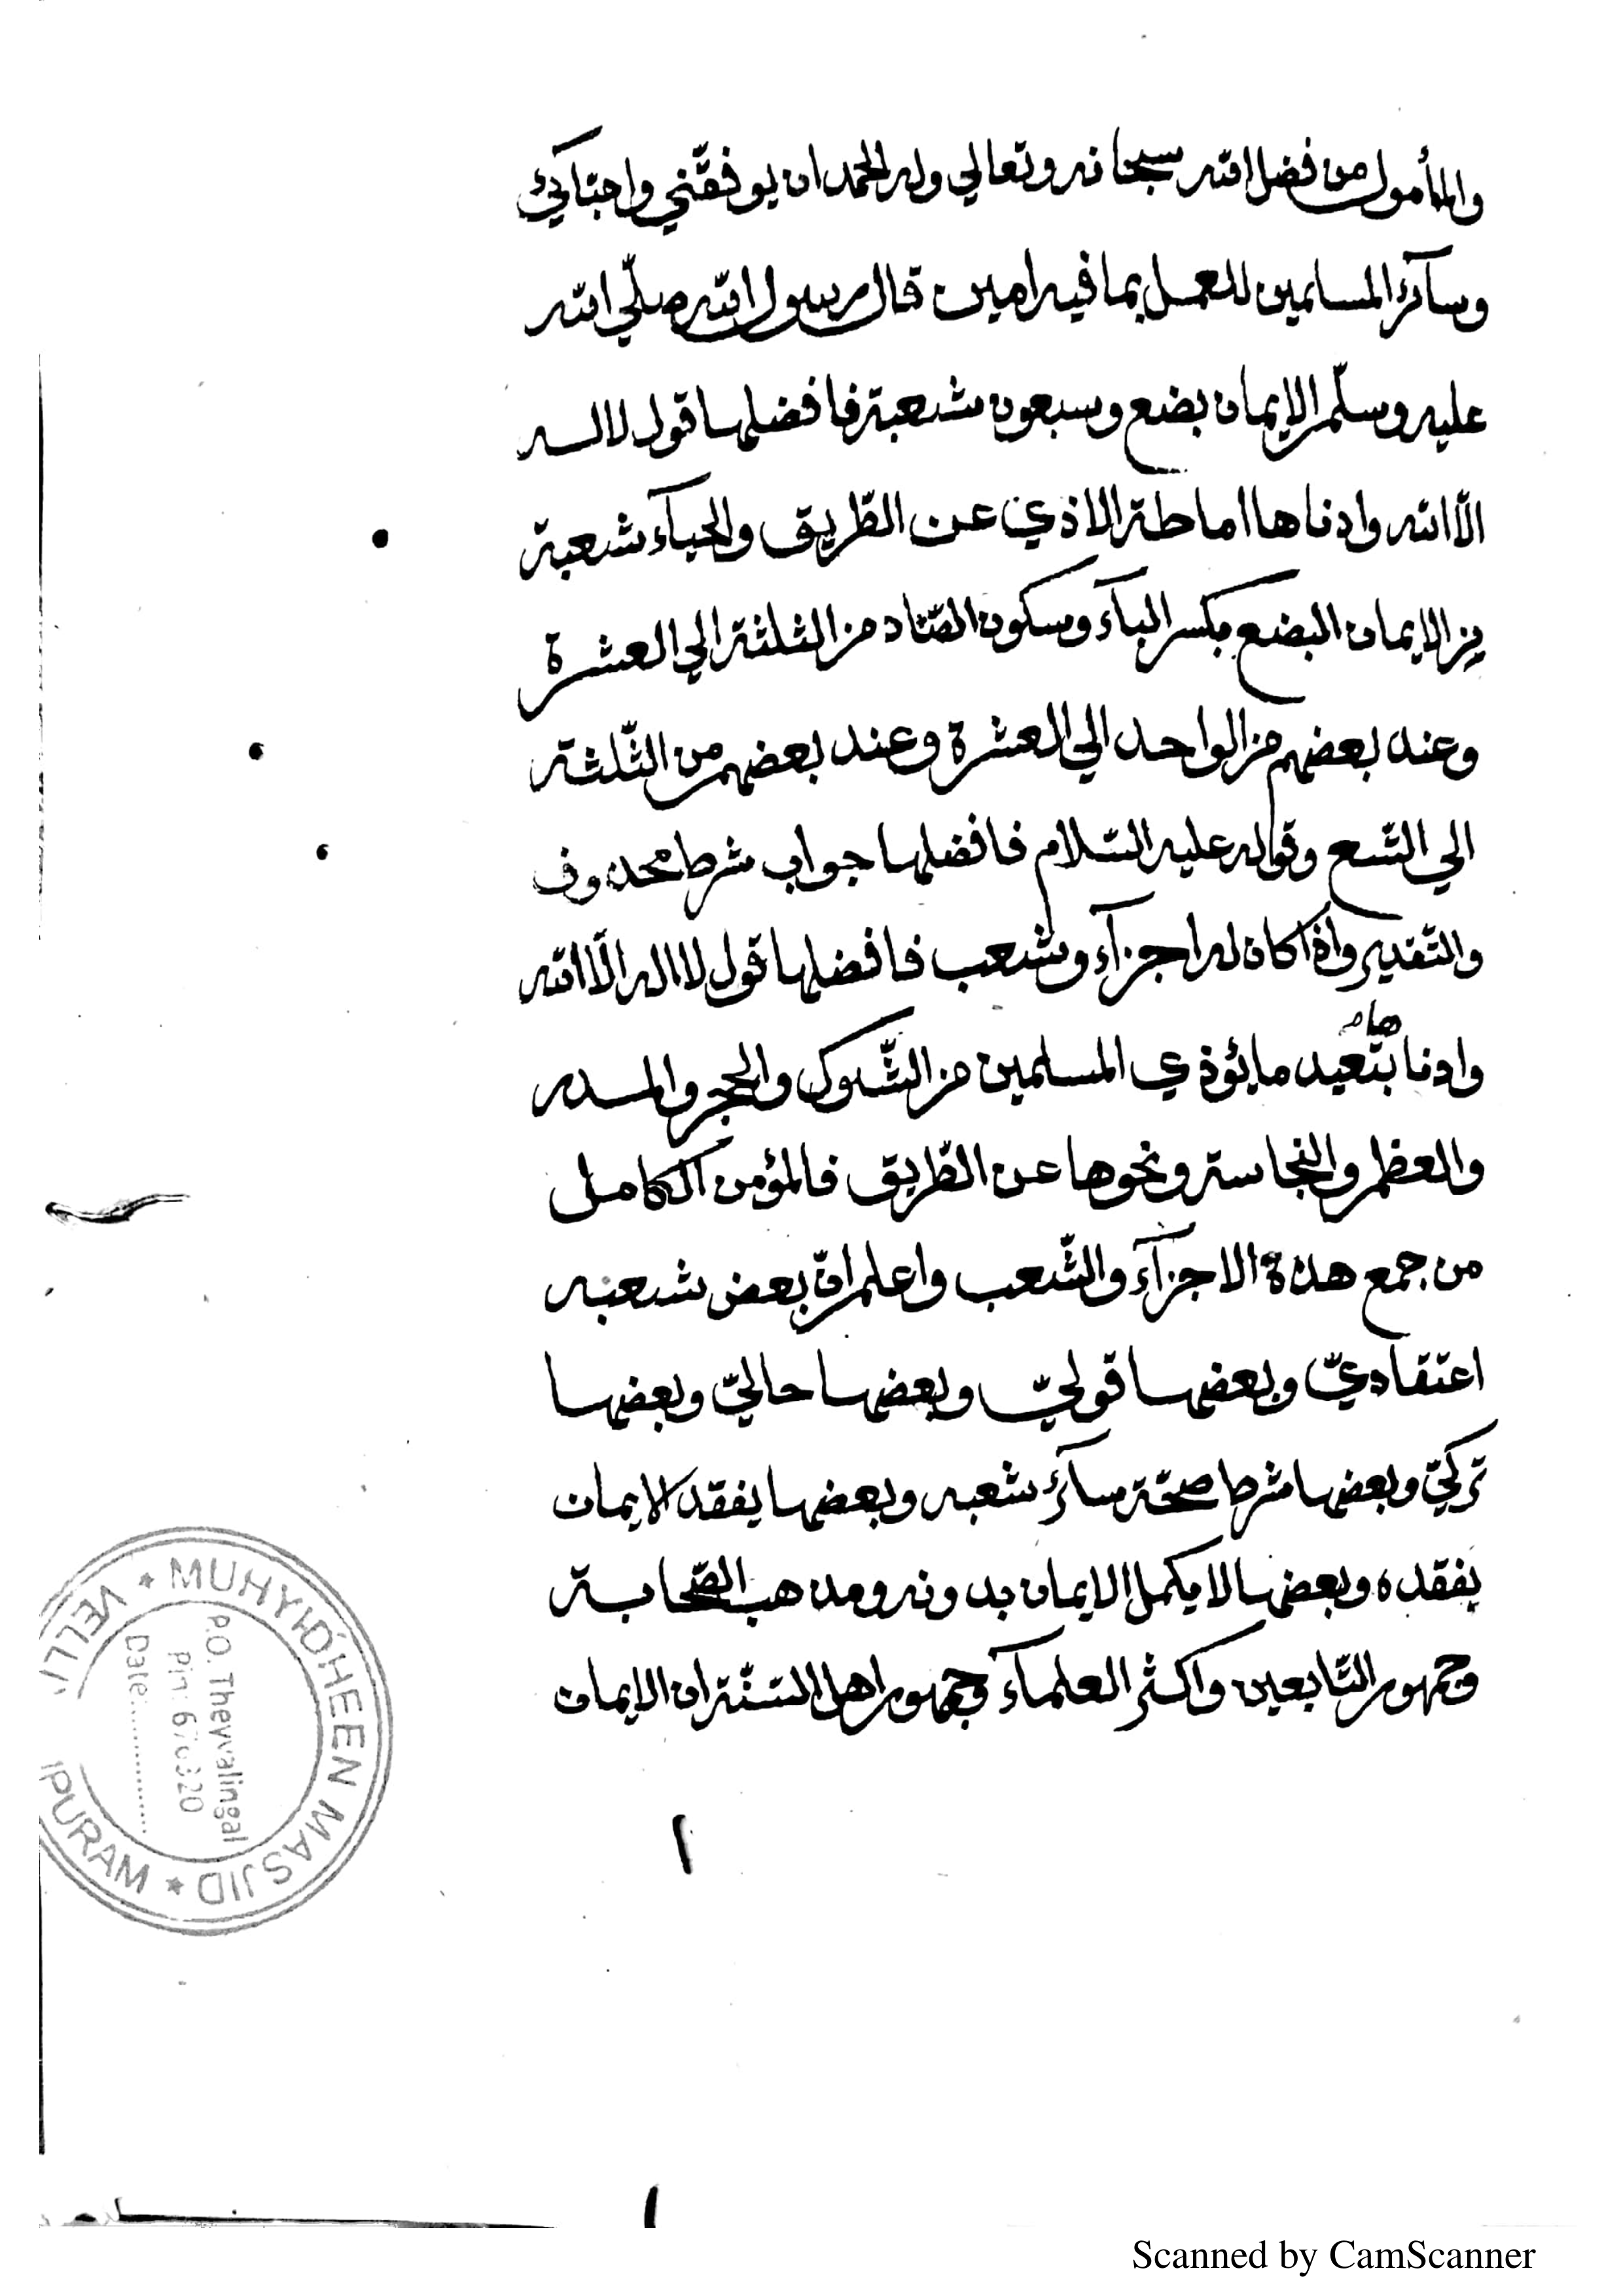 والمأمول من فضل الله سبحانه وتعالي وله الحمد ان يوفقّني واحبّآئي
وسآئر المسلمين للعمل بما فيه امين قال رسول الله صلّي الله
عليه وسلّم الايمان بضع وسبعون شعبة فافضلها قول لا اله
الّا الله وادناها اماطة الاذي عن الطّريق والحيآء شعبة
من الايمان البضع بكسر البآء وسكون الضّاد من الثلثة الي العشرة
وعند بعضهم من الواحد الي العشرة وعند بعضهم من الثّلثة
الي التّسع وقوله عليه السّلام فافضلها جواب شرط محذوف
والتّقدير واذا كان له اجزآء وشعب فافضلها قول لا اله الّا الله
وادناها تبعيد ما يؤذي المسلمين من الشّوك والحجر والمدر
والعظم والنجاسة ونحوها عن الطّريق فالمؤمن الكامل
من جمع هذه الاجزآء والشّعب واعلم انّ بعض شعبه
اعتقاديّ وبعضها قوليّ وبعضها حاليّ وبعضها
تركيّ وبعضها شرط صحّة سآئر شعبه وبعضها يفقد الايمان
بفقده وبعضها لا يكمل الايمان بدونه ومذهب الصّحابة
وجمهور التّابعين واكثر العلمآء وجمهور اهل السّنّة ان الايمان
١
MUHYIDHEEN MASJID
VELLI
PURAM
P.O. Thevvalingal
Pin: 676320
Date:
Scanned by CamScanner